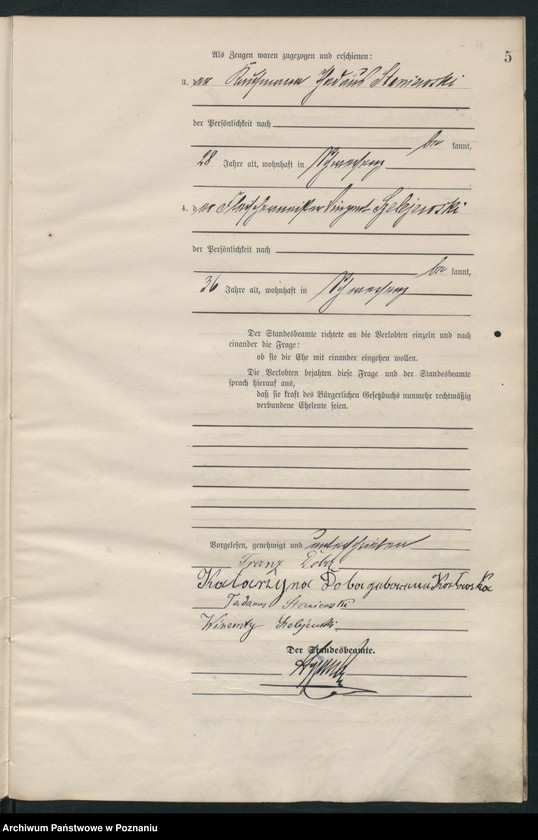 5
Als Zeugen waren zugezogen und erschienen:
3. der Kaufmann Thadäus Staniewski
der Persönlichkeit nach
be kannt,
28 Jahre alt, wohnhaft in Schwersenz
4. der Fleischermeister Vinzent Szelejewski
der Persönlichkeit nach
be kannt,
36 Jahre alt, wohnhaft in Schwersenz
Der Standesbeamte richtete an die Verlobten einzeln und nach
einander die Frage:
ob sie die Ehe mit einander eingehen wollen.
Die Verlobten bejahten diese Frage und der Standesbeamte
sprach hierauf aus,
daß sie kraft des Bürgerlichen Gesetzbuchs nunmehr rechtmäßig
verbundene Eheleute seien.
Vorgelesen, genehmigt und unterschrieben
Franz
Katarzyna Doba
Tadeusz Staniewski
Wincenty Szelejewski
Der Standesbeamte.
Archiwum Państwowe w Poznaniu